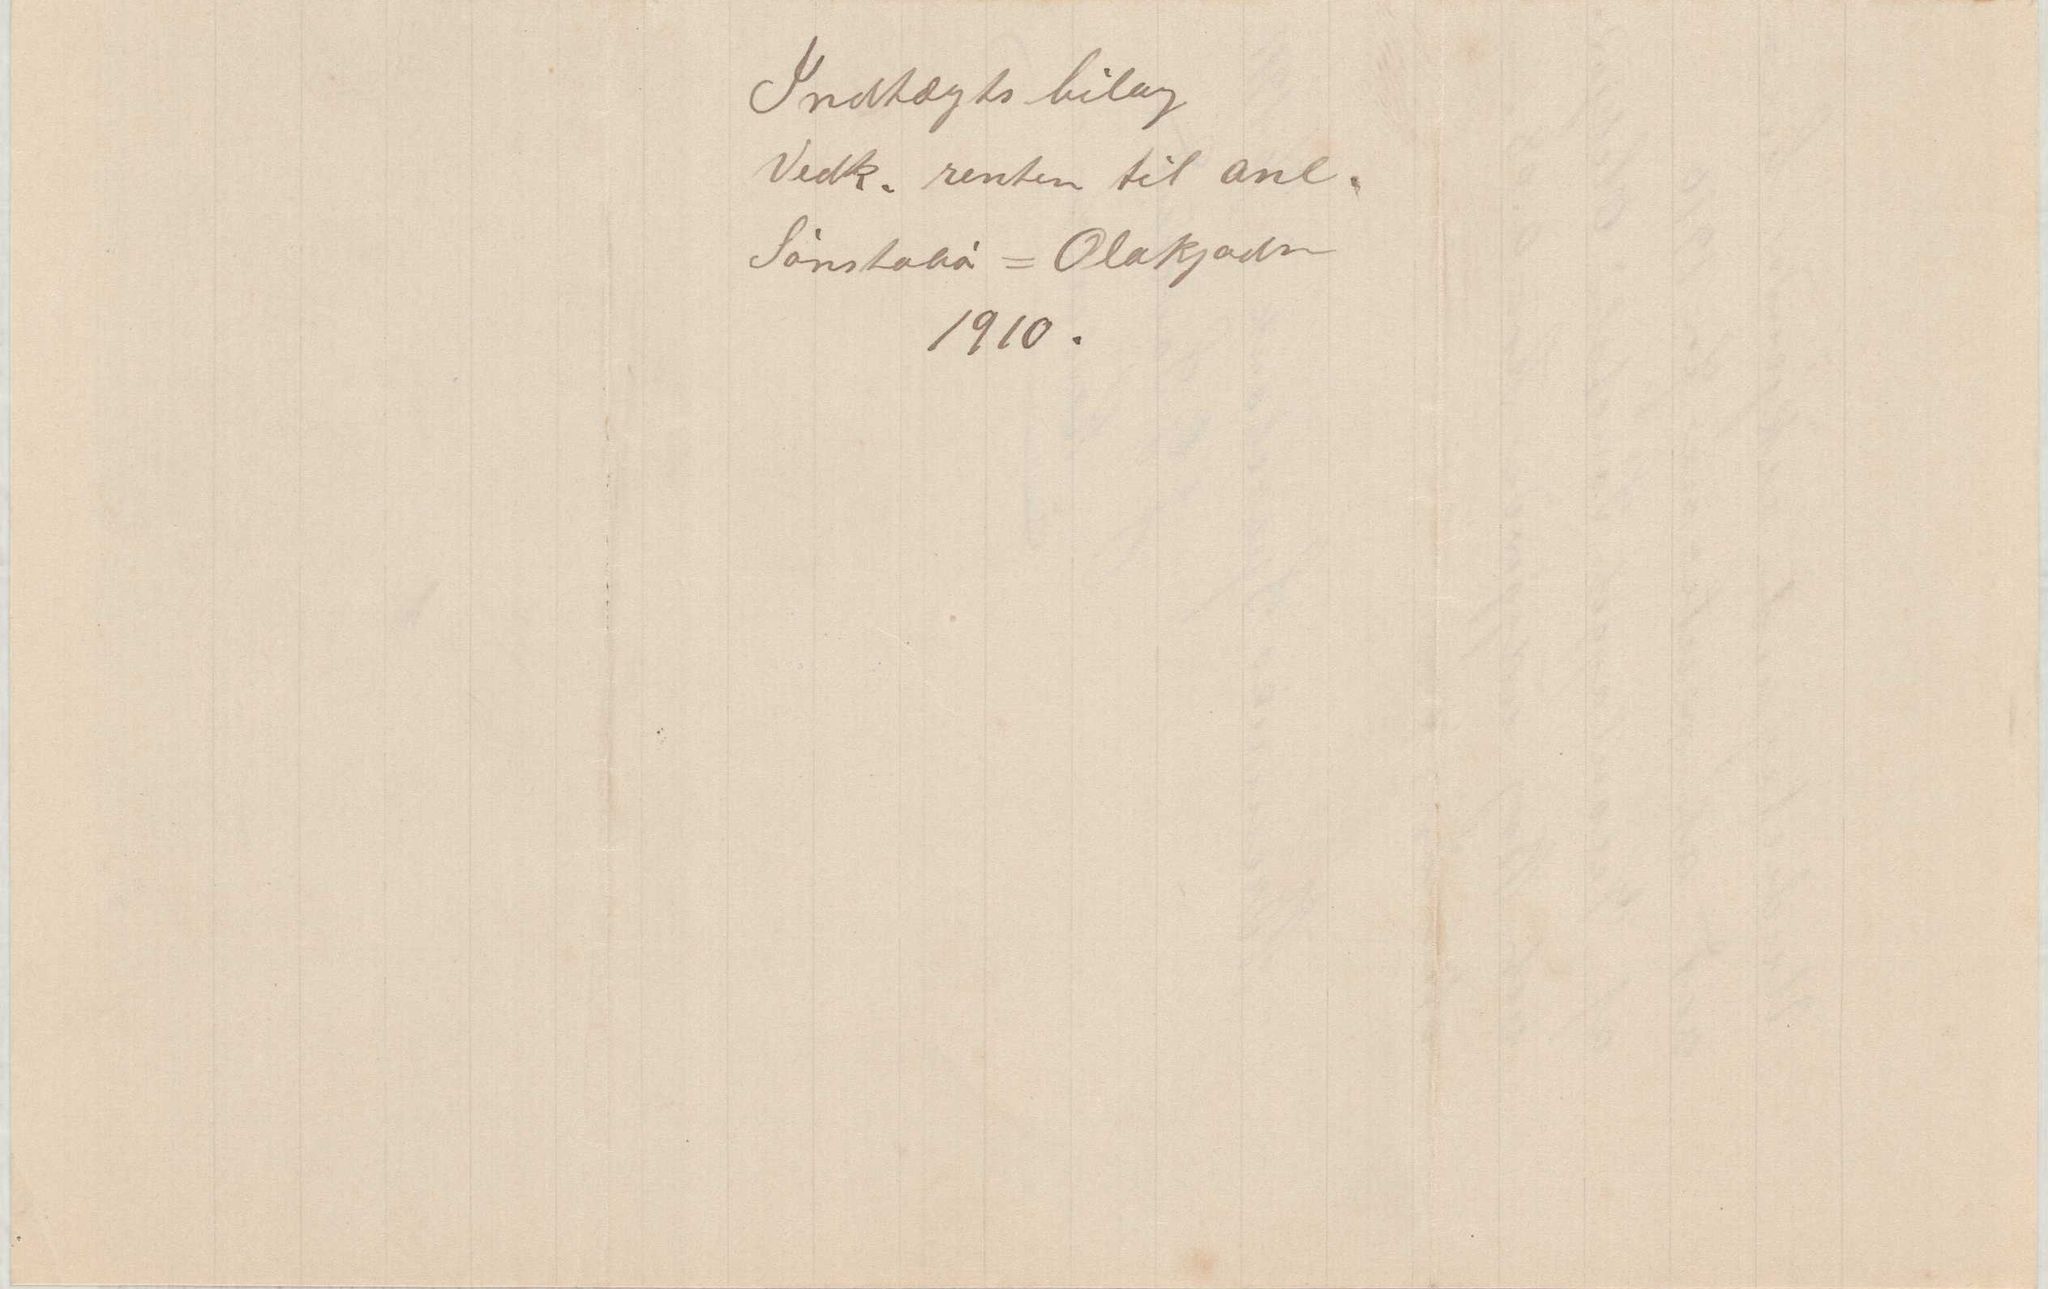 Indtægts bilag
Vedk. renten til anl.
Sønstabø = Olakjødn
1910.